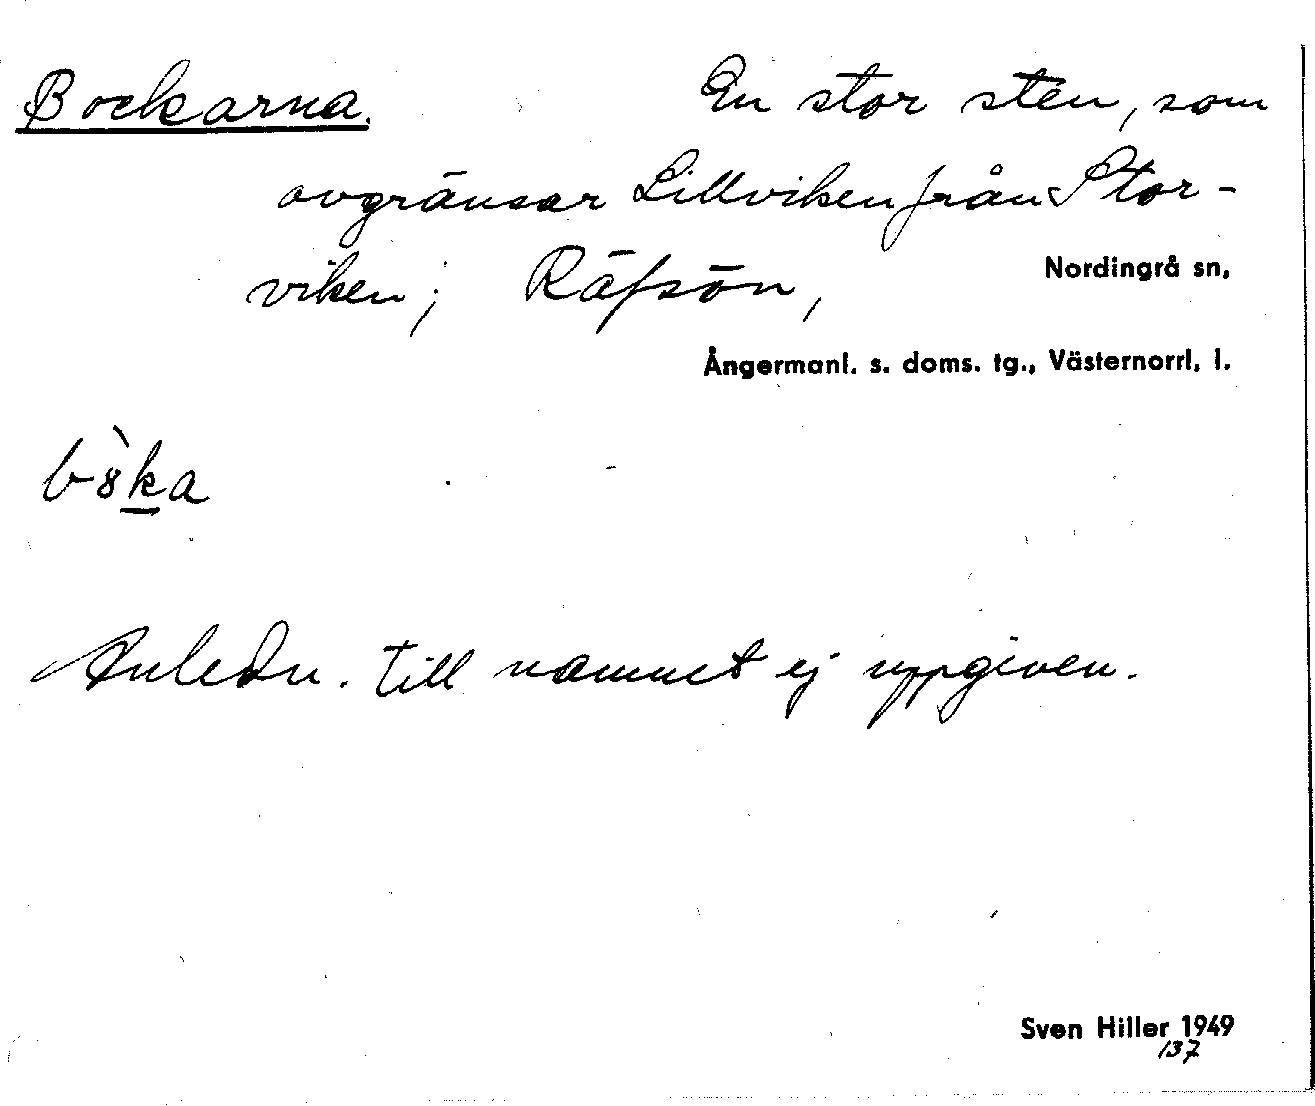 Bockarna. En stor sten, som
avgränsar Lillviken från Stor-
viken; Räfsön, Nordingrå sn,
Ångermanl. s. doms. tg., Västernorrl, l.
bò̀ka
Anledn. till namnet ej uppgiven.
Sven Hiller 1949
137